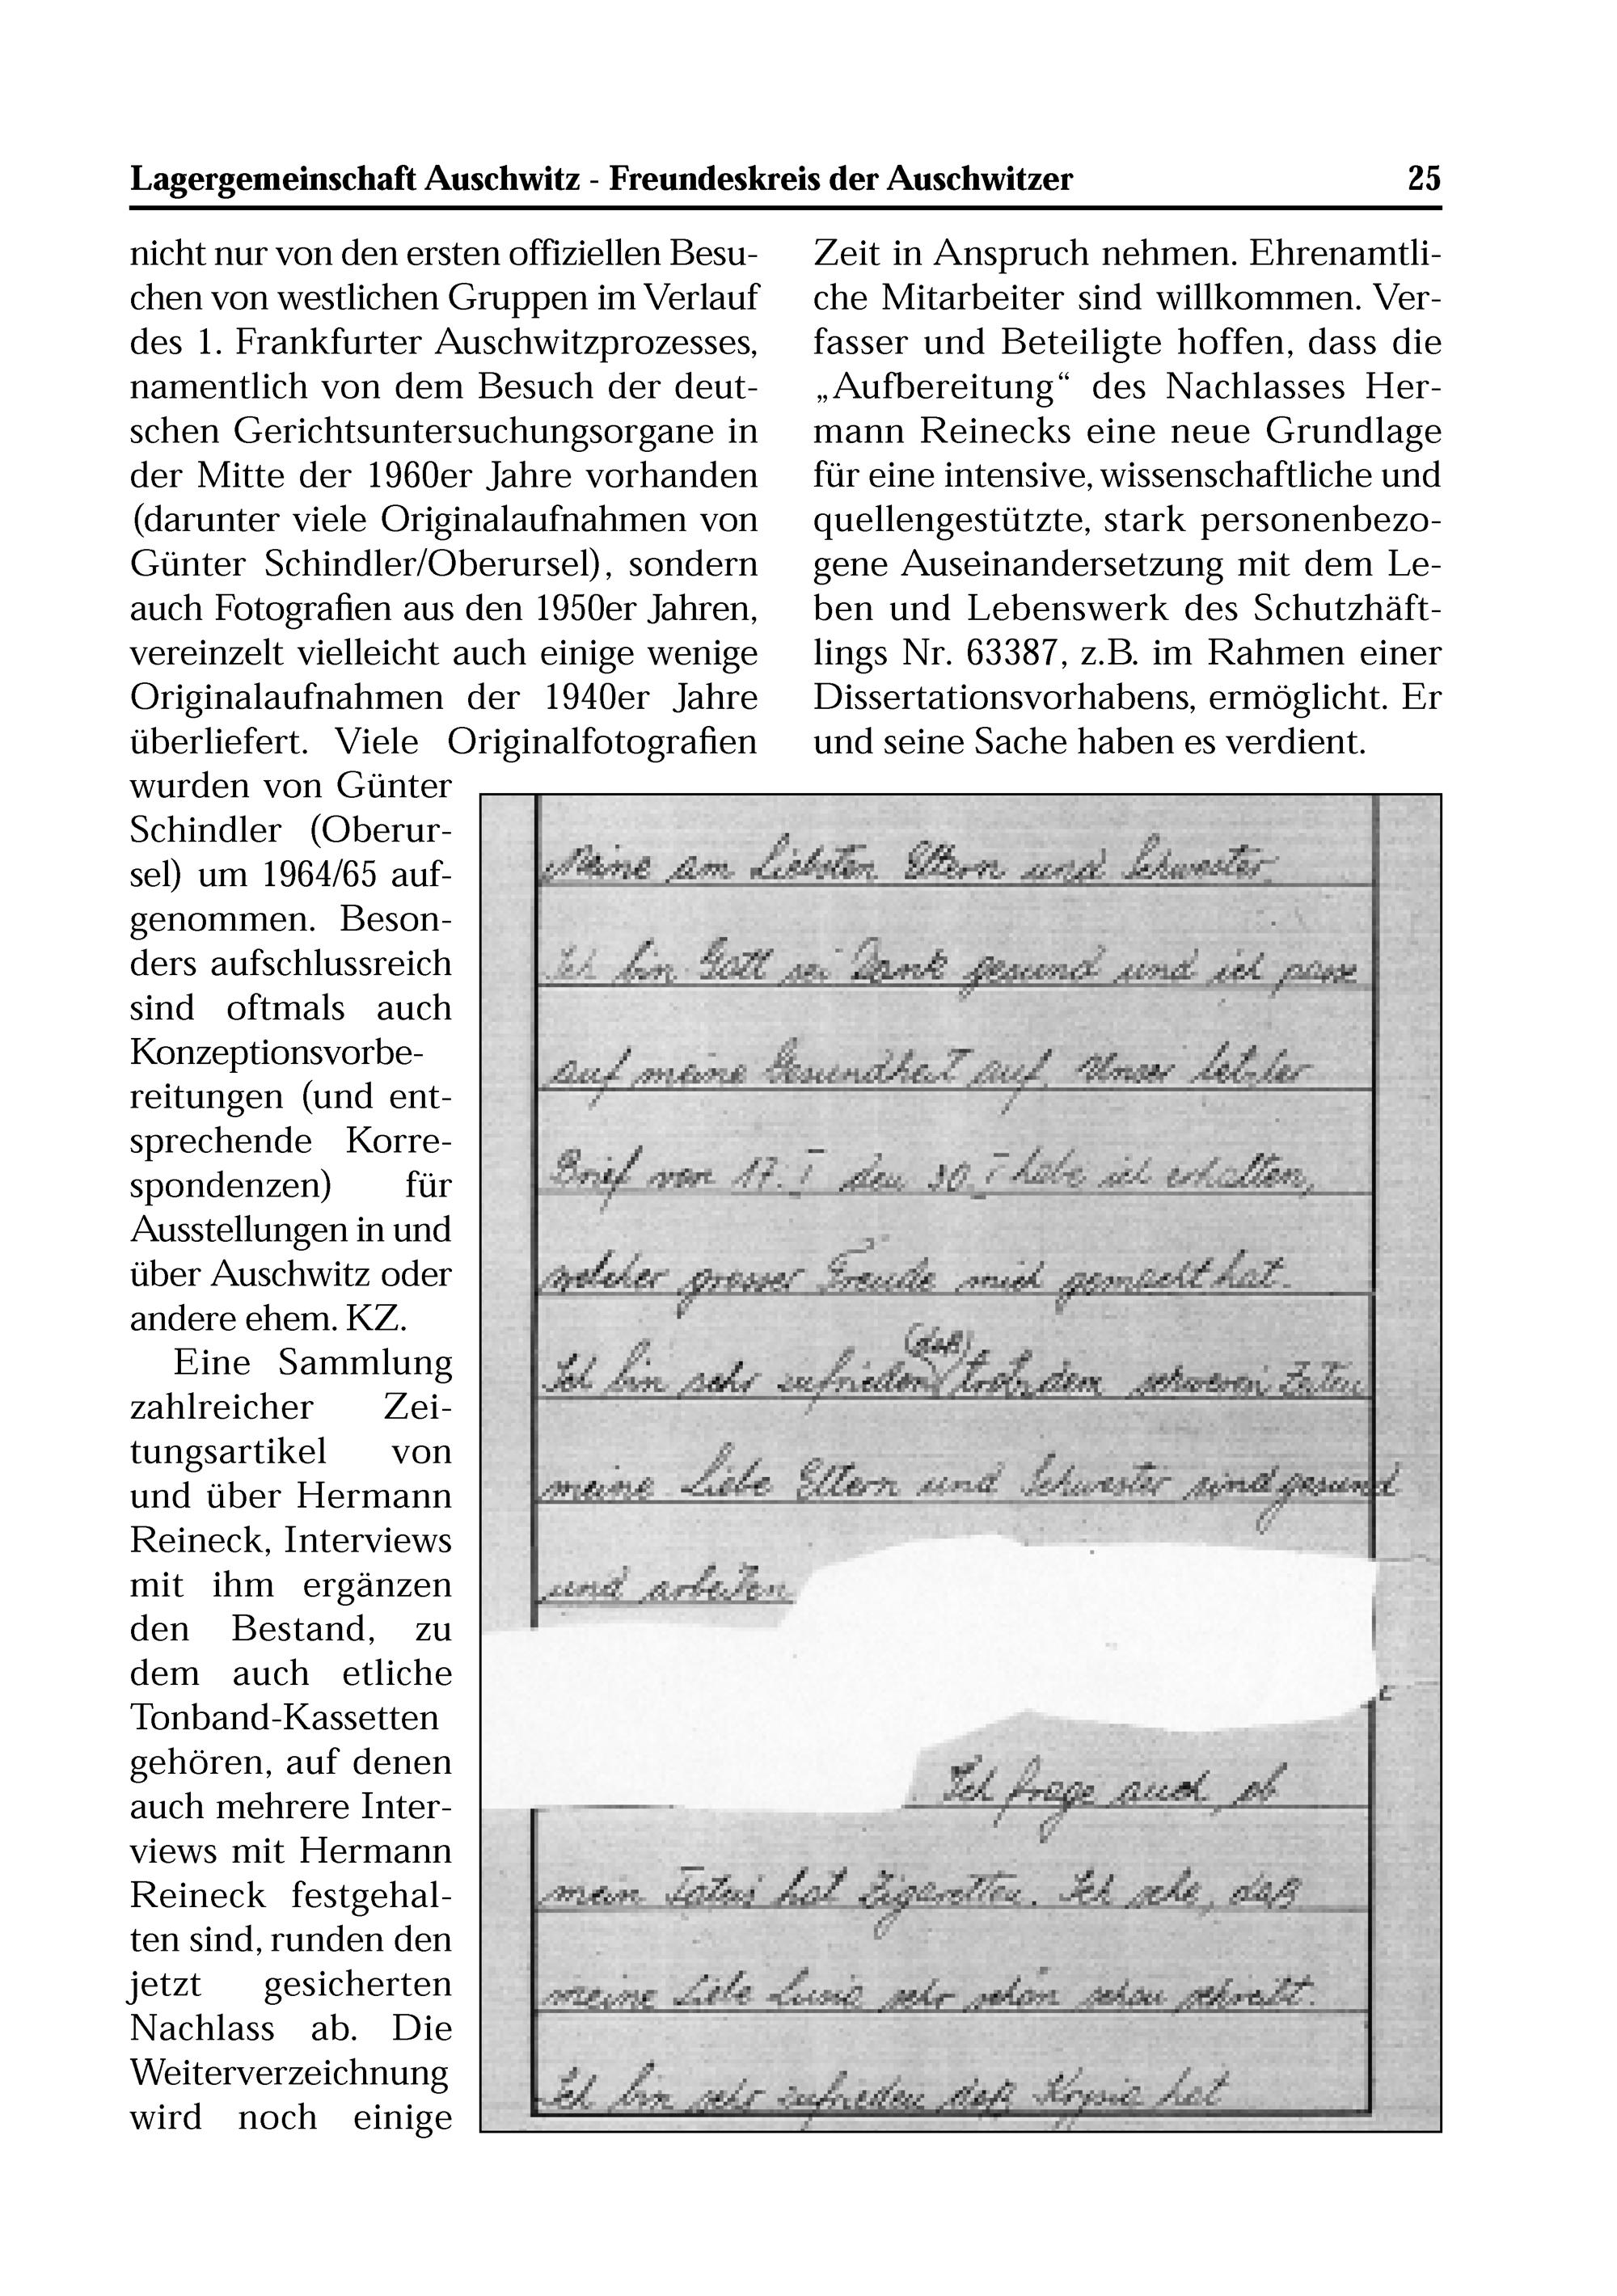 Lagergemeinschaft Auschwitz - Freundeskreis der Auschwitzer 25
nicht nur von den ersten offiziellen Besu-
chen von westlichen Gruppen im Verlauf
des 1. Frankfurter Auschwitzprozesses,
namentlich von dem Besuch der deut-
schen Gerichtsuntersuchungsorgane in
der Mitte der 1960er Jahre vorhanden
(darunter viele Originalaufnahmen von
Günter Schindler/Oberursel), sondern
auch Fotografien aus den 1950er Jahren,
vereinzelt vielleicht auch einige wenige
Originalaufnahmen der 1940er Jahre
überliefert. Viele Originalfotografien
wurden von Günter
Schindler (Oberur-
sel) um 1964/65 auf-
genommen. Beson-
ders aufschlussreich
sind oftmals auch
Konzeptionsvorbe-
reitungen (und ent-
sprechende Korre-
spondenzen) für
Ausstellungen in und
über Auschwitz oder
andere ehem. KZ.
Eine Sammlung
zahlreicher Zei-
tungsartikel von
und über Hermann
Reineck, Interviews
mit ihm ergänzen
den Bestand, zu
dem auch etliche
Tonband-Kassetten
gehören, auf denen
auch mehrere Inter-
views mit Hermann
Reineck festgehal-
ten sind, runden den
jetzt gesicherten
Nachlass ab. Die
Weiterverzeichnung
wird noch einige
Zeit in Anspruch nehmen. Ehrenamtli-
che Mitarbeiter sind willkommen. Ver-
fasser und Beteiligte hoffen, dass die
„Aufbereitung“ des Nachlasses Her-
mann Reinecks eine neue Grundlage
für eine intensive, wissenschaftliche und
quellengestützte, stark personenbezo-
gene Auseinandersetzung mit dem Le-
ben und Lebenswerk des Schutzhäft-
lings Nr. 63387, z.B. im Rahmen einer
Dissertationsvorhabens, ermöglicht. Er
und seine Sache haben es verdient.
Meine am Liebsten Eltern und Schwester
Ich bin Gott sei Dank gesund und ich passe
auf meine Gesundheit auf. Unser letzter
Brief von 17. I den 30. I habe ich erhalten,
welcher grosser Freude mich gemacht hat.
Ich bin sehr zufrieden (daß) trotz dem schweren Zeiten
meine Liebe Eltern und Schwester sind gesund
und arbeiten
Ich frage auch, ob
mein Tatuś hat Zigaretten. Ich sehe, daß
meine Liebe Lusia sehr schön schon schreibt.
Ich bin sehr zufrieden daß Krysia hat